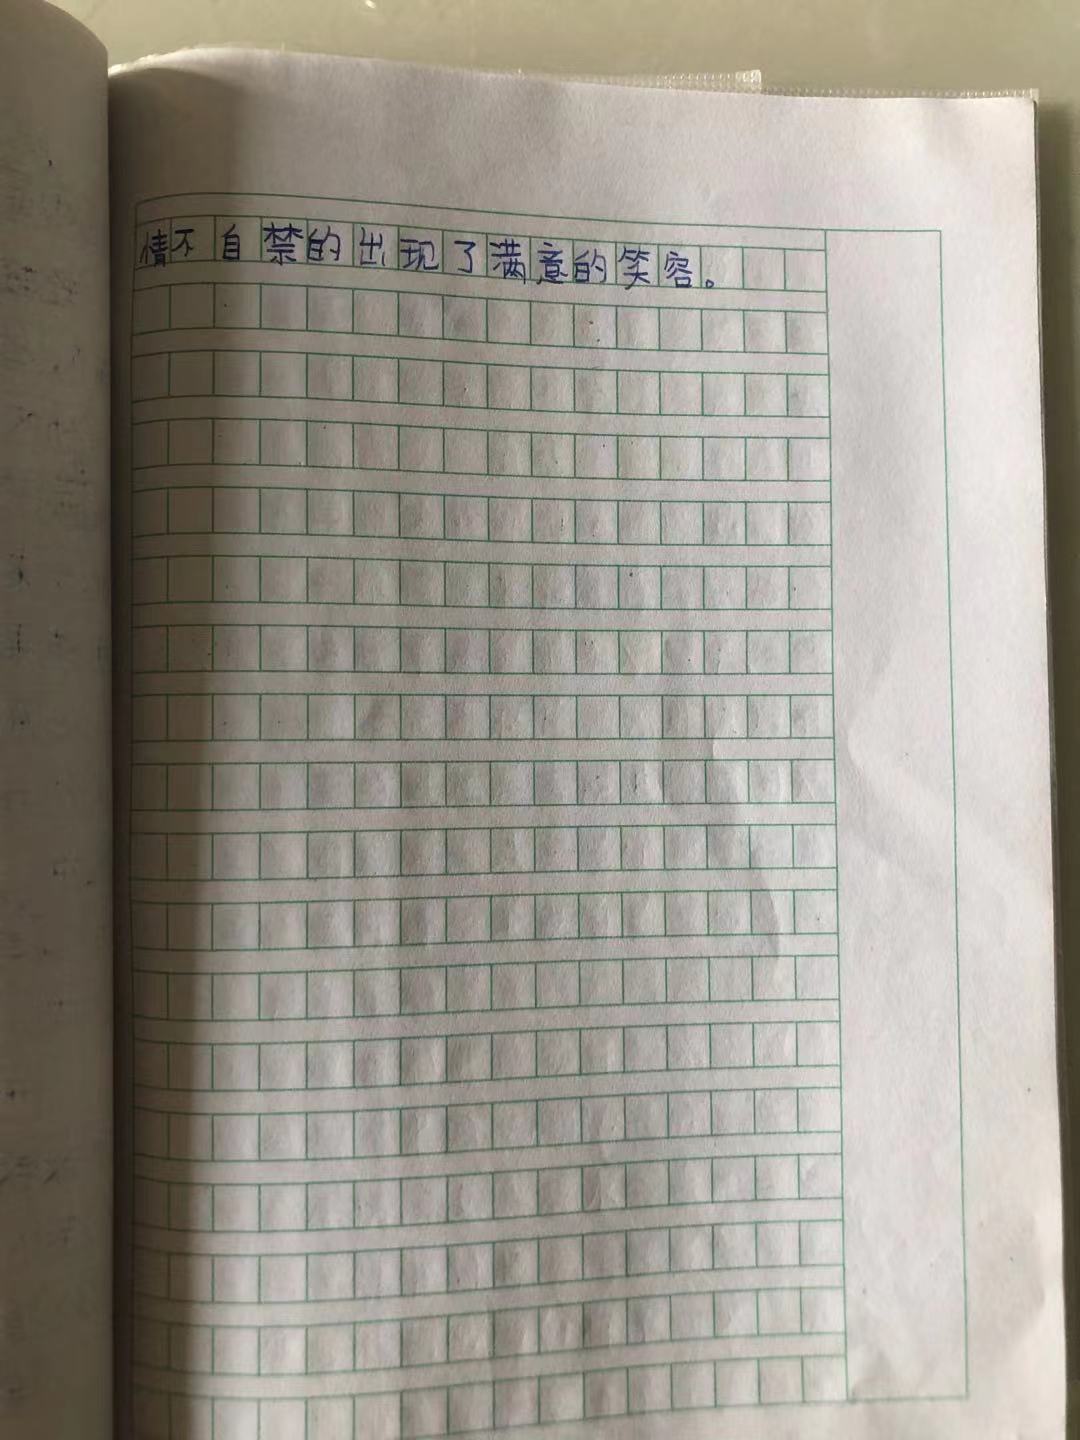 情不自禁的出现了满意的笑容。